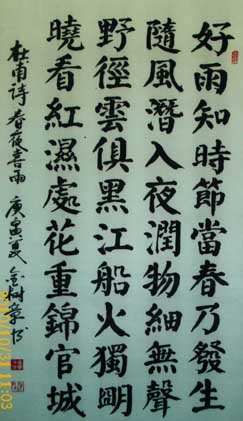 好雨知時節當春乃發生
隨風潛入夜潤物細無聲
野徑雲俱黑江船火獨明
曉看紅濕處花重錦官城
杜甫诗春夜喜雨 庚寅夏
10/31 11:03